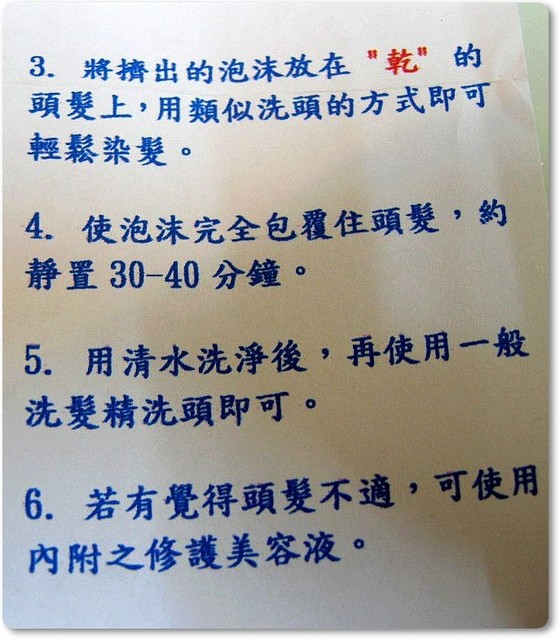 3. 將擠出的泡沫放在 "乾" 的
頭髮上，用類似洗頭的方式即可
輕鬆染髮。
4. 使泡沫完全包覆住頭髮，約
靜置 30-40 分鐘。
5. 用清水洗淨後，再使用一般
洗髮精洗頭即可。
6. 若有覺得頭髮不適，可使用
內附之修護美容液。